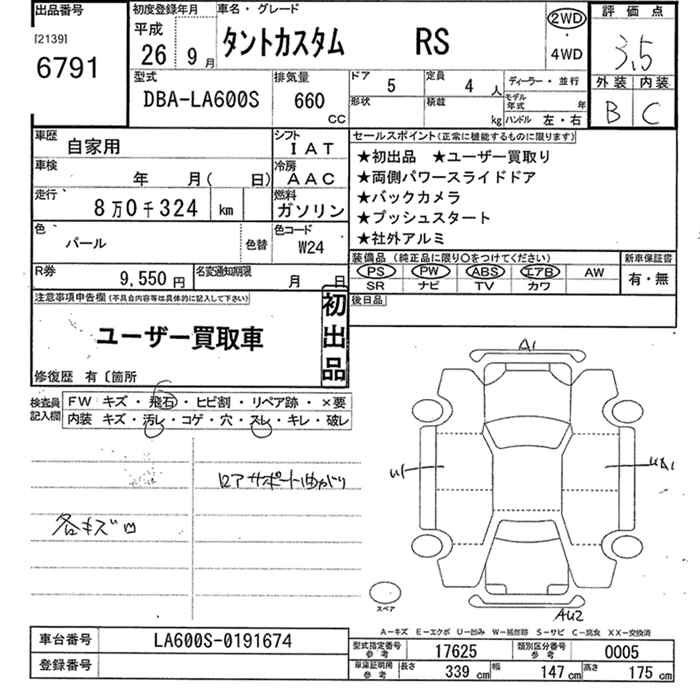 出品番号
[2139]
6791
初度登録年月
平成
26 年 9 月
車名・グレード
タントカスタム RS
2WD
・
4WD
評価点
3.5
外装 内装
B C
型式
DBA-LA600S
排気量
660 CC
ドア 5
定員 4 人
形状
積載 kg
ディーラー・並行
モデル年式 年
ハンドル 左・右
車歴
自家用
シフト
IAT
車検
年 月( 日)
冷房
AAC
走行
8万0千324 km
燃料
ガソリン
色
パール
色替
色コード
W24
R券
9,550 円
名変通知期限
月 日
セールスポイント(正常に機能するものに限ります)
★初出品 ★ユーザー買取り
★両側パワースライドドア
★バックカメラ
★プッシュスタート
★社外アルミ
装備品 (純正品に限り○をつけてください)
PS PW ABS エアB AW
SR ナビ TV カワ
新車保証書
有・無
後日品
注意事項申告欄(不具合内容等は具体的に記入して下さい)
ユーザー買取車
初出品
修復歴 有〔箇所
検査員記入欄
FW キズ・飛石・ヒビ割・リペア跡・×要
内装 キズ・汚レ・コゲ・穴・スレ・キレ・破レ
ロアサポート曲がり
各キズ凹
A1
U1
UA1
AU2
スペア
A-キズ E-エクボ U-凹み W-補修跡 S-サビ C-腐食 XX-交換済
車台番号
LA600S-0191674
登録番号
型式指定番号 参考 17625
類別区分番号 参考 0005
車庫証明用 参考 長さ 339 cm 幅 147 cm 高さ 175 cm